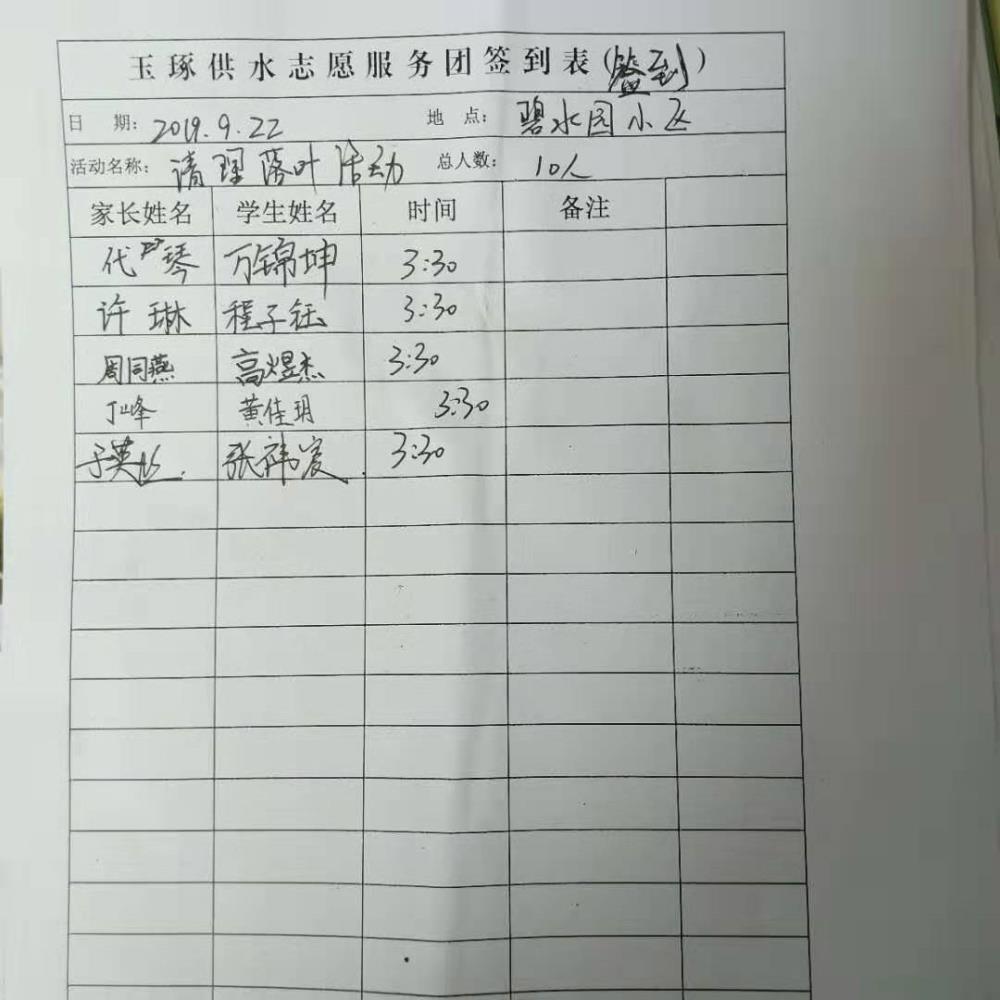 玉琢供水志愿服务团签到表(签到)
日 期: 2019.9.22 地 点: 碧水园小区
活动名称: 清理落叶活动 总人数: 10人
家长姓名 学生姓名 时间 备注
代 琴 万锦坤 3:30
许琳 程子钰 3:30
周同燕 高煜杰 3:30
丁峰 黄佳玥 3:30
于英 张祎 3:30